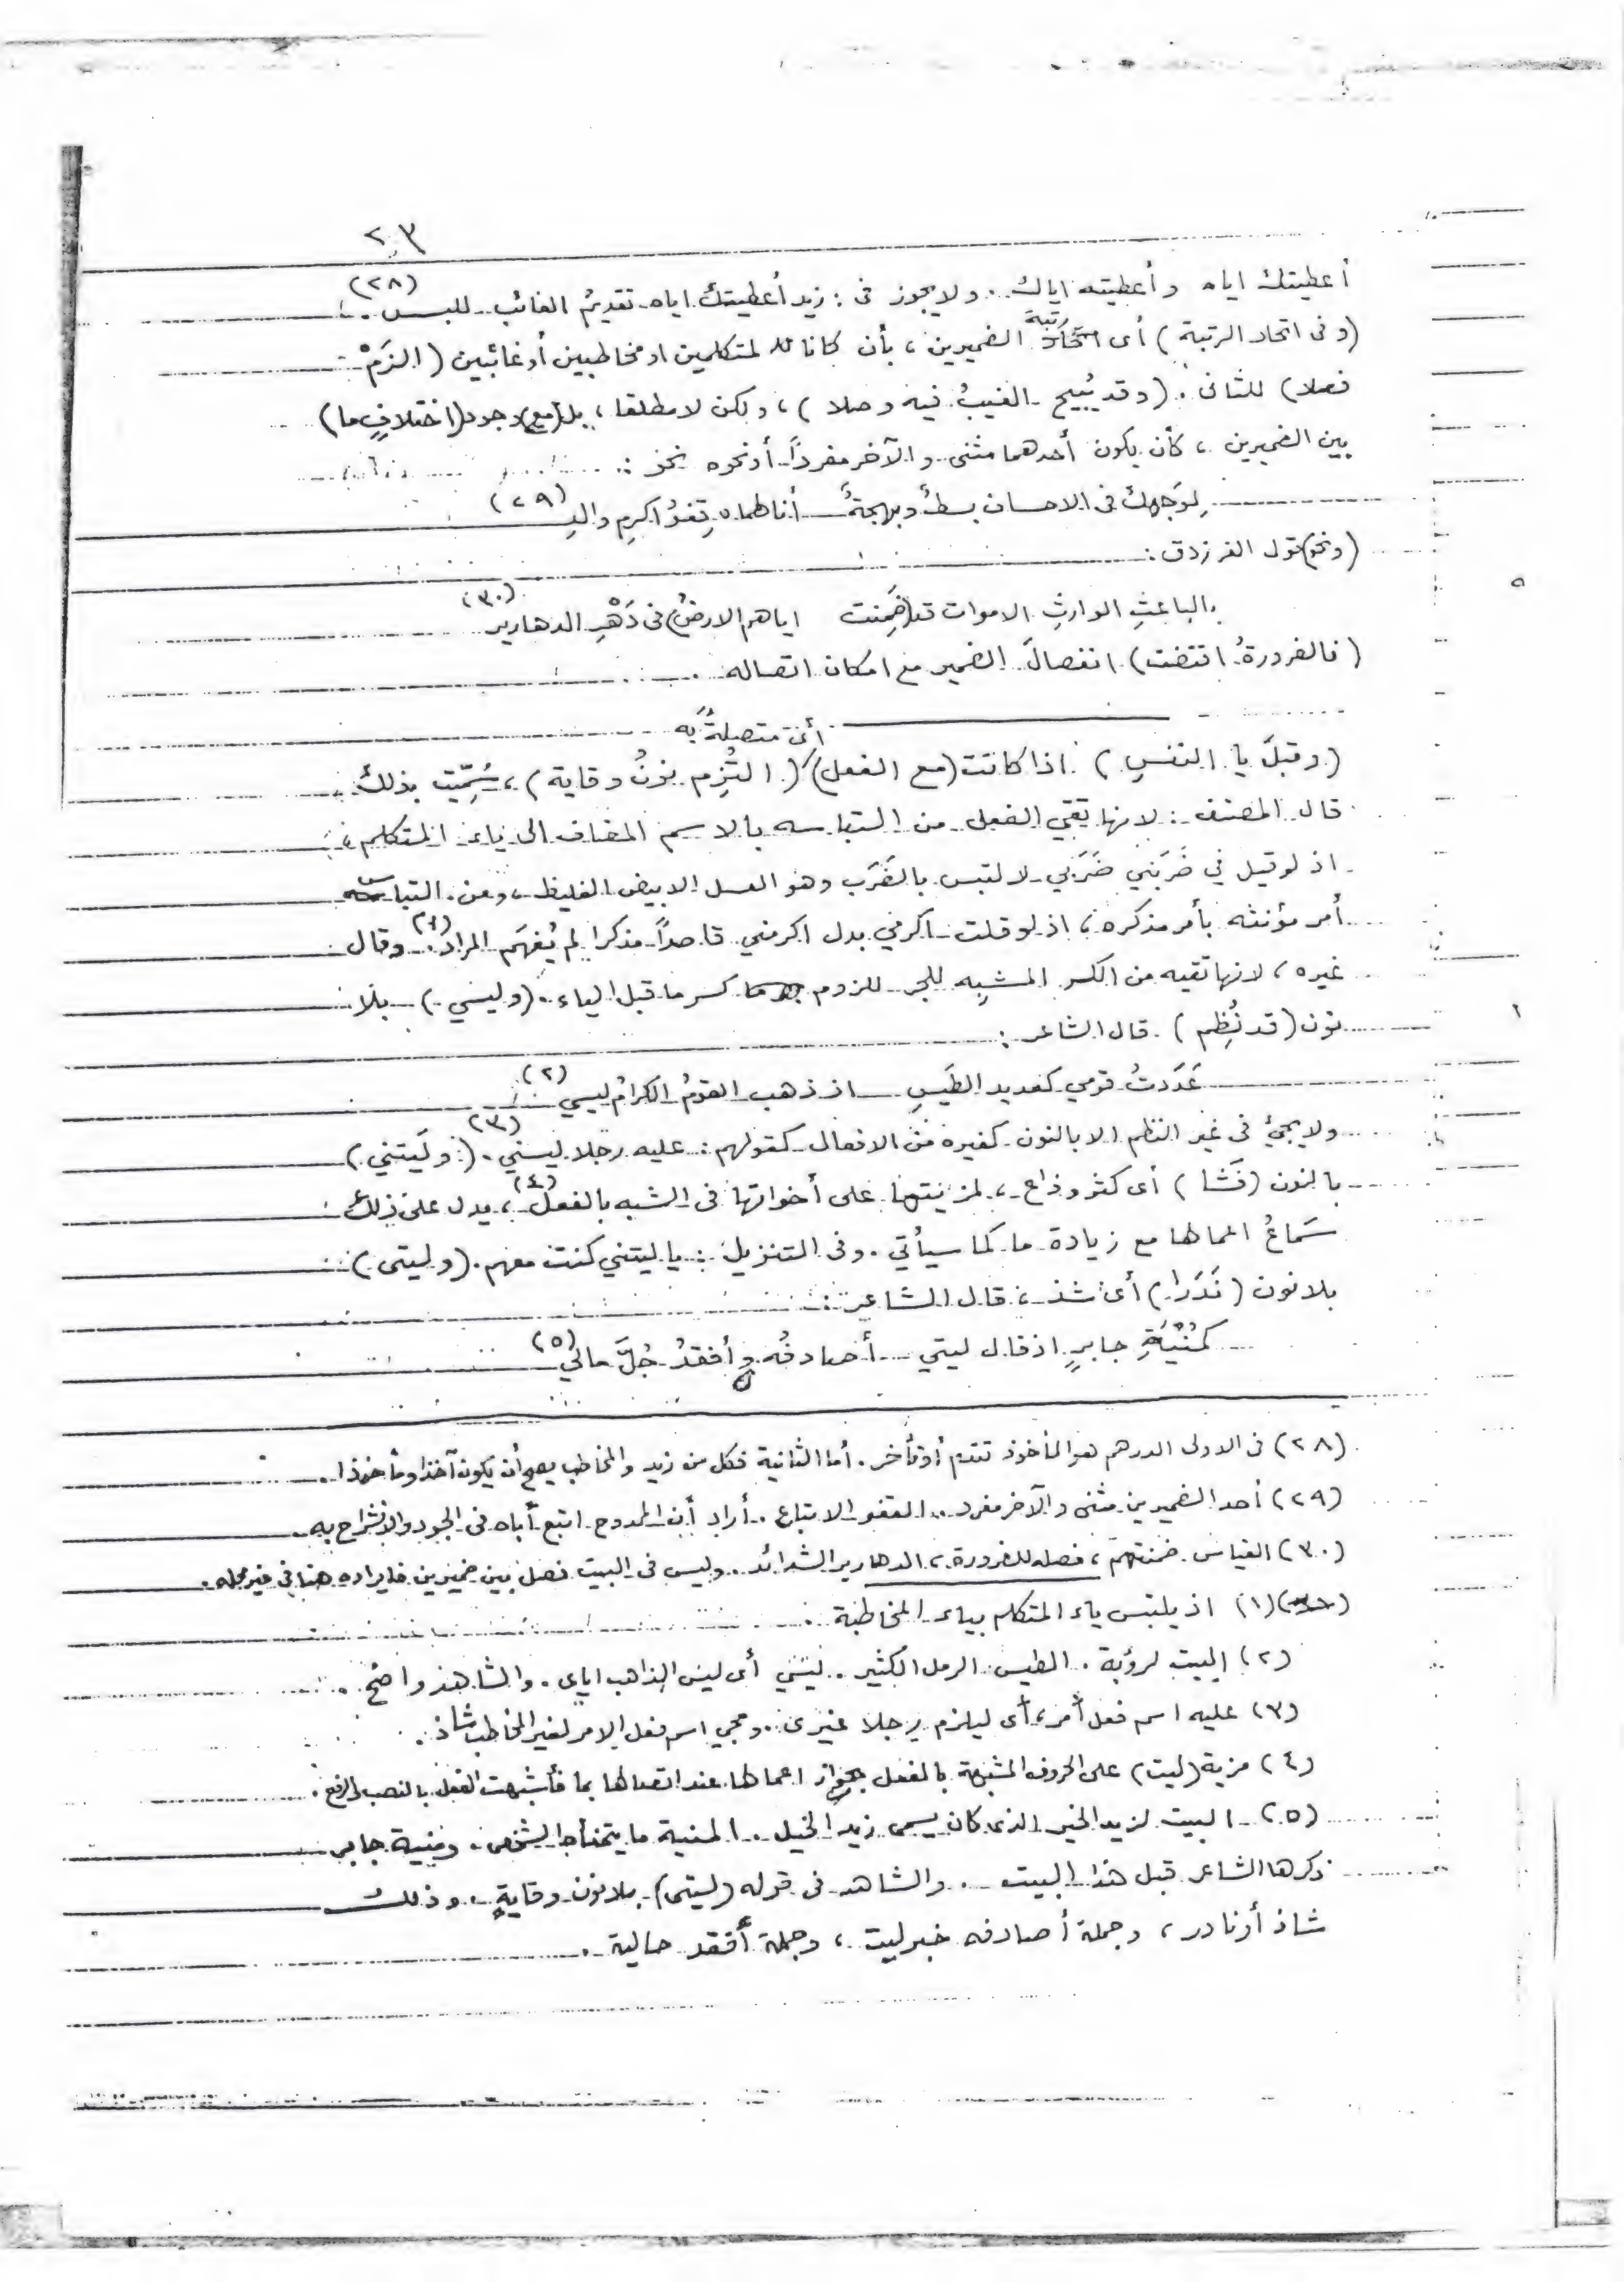 ٢٣
أعطيتك اياه وأعطيته اياك . ولا يجوز فى : زيد أعطيتك اياه تقديمُ الغائب للبس . (٢٨)
(وفى اتحاد الرتبة ) أى رتبة الضميرين ، بأن كانا لمتكلمين او مخاطبين أو غائبين ( الزَمْ
فصلا) للثانى . ( وقد يُبيح الغيبُ فيه وصلا ) ، ولكن لا مطلقا ، بل (مع) وجود (اختلافٍ ما)
بين الضميرين ، كأن يكون أحدهما مثنى والآخر مفرداً أو نحوه نحو :
لِوَجهِك فى الاحسان بسطٌ وبهجةٌ أنا لهماه قفوُ اكرمِ والدِ (٢٩)
(ونحو) قول الفرزدق :
بالباعثِ الوارثِ الاموات قد (ضَمِنت اياهم الارضُ) فى دَهْرِ الدهارير (٣٠)
( فالضرورةُ اقتضت ) انفصالَ الضمير مع امكان اتصاله .
أى متصلةً به
( وقبلَ يا النفسِ ) اذا كانت (مع الفعل) ( التُزِم نونُ وقاية ) ، سُمِّيت بذلك
قال المصنف : لانها تقي الفعل من التباسه بالاسم المضاف الى ياء المتكلم ،
اذ لو قيل في ضَرَبَني ضَرَبي لالتبس بالضَرَب وهو العسل الابيض الغليظ ، ومن التباس
أمر مؤنثه بأمر مذكره ، اذ لو قلت اكرمي بدل اكرمني قاصداً مذكرا لم يُفهَم المراد (١) . وقال
غيره ، لانها تقيه من الكسر المشبِه للجر للزوم كسر ما قبل الياء . (وليسي ) بلا
نون ( قد نُظِم ) قال الشاعر :
عَدَدتُ قومي كعديد الطَيسِ اذ ذهب القومُ الكرامُ ليسي (٢)
ولا يجيُ فى غير النظم الا بالنون كغيره من الافعال كقولهم : عليه رجلا ليسني (٣) . ( وليَتني )
بالنون (فَشا ) أى كثر وذاع ، لمزيتها على أخواتها فى الشبه بالفعل (٤) ، يدل على ذلك
سَماعُ اعمالها مع زيادة ما كما سيأتي . وفى التنزيل : يا ليتني كنت معهم . ( وليتى )
بلا نون ( نَدَرا ) أى شذ ، قال الشاعر :
كمُنْيَةِ جابرٍ اذ قال ليتي أصادفُه وأفقدُ جُلَّ مالي (٥)
(٢٨) فى الاولى الدرهم هو المأخوذ تقدم أو تأخر . أما الثانية فكل من زيد والمخاطب يصح أن يكون آخذا ومأخوذا .
(٢٩) أحد الضميرين مثنى والآخر مفرد . القفو الاتباع . أراد أن الممدوح اتبع أباه فى الجود والانشراح به .
(٣٠) القياس ضمنتهم ، فصله للضرورة ، الدهارير الشدائد . وليس فى البيت فصل بين ضميرين فايراده هنا فى غير محله .
(١) اذ يلتبس ياء المتكلم بياء المخاطبة .
(٢) البيت لرؤبة . الطيس الرمل الكثير . ليسي أى ليس الذاهب اياى . والشاهد واضح .
(٣) عليه اسم فعل أمر ، أى ليلزم رجلا غيرى . ومجي اسم فعل الامر لغير المخاطب شاذ .
(٤) مزية (ليت) على الحروف المشبهة بالفعل بجواز اعمالها عند اتصالها بما فأشبهت الفعل بالنصب والرفع .
(٥) البيت لزيد الخير الذى كان يسمى زيد الخيل . المنية ما يتمناه الشخص . ومنية جابر
ذكرها الشاعر قبل هذا البيت . والشاهد فى قوله (ليتى) بلا نون وقاية ، وذلك
شاذ أو نادر ، وجملة أصادفه خبر ليت ، وجملة أفقد حالية .